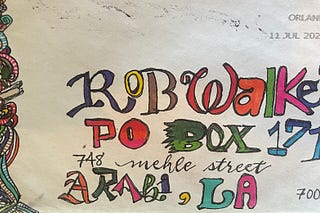 ORLAN
11 JUL 202
ROB Walke
PO BOX 171
748 mehle street
ARAbi, LA
700